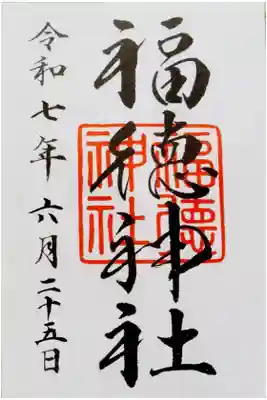 福徳神社
福德
神社
令和七年六月二十五日